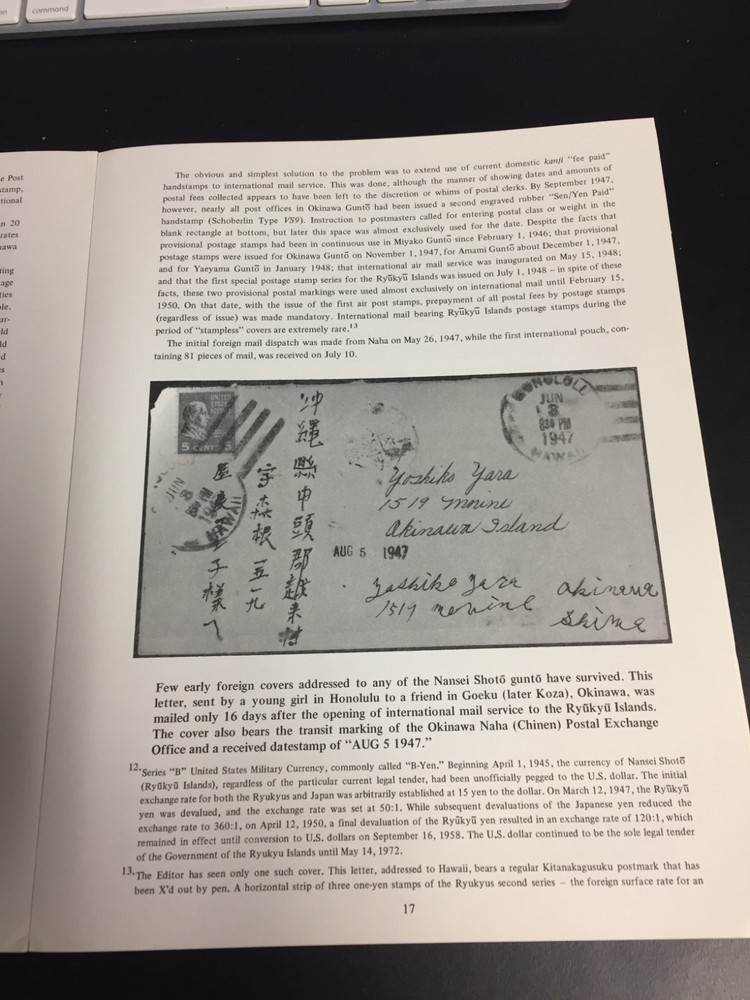 command
The obvious and simplest solution to the problem was to extend use of current domestic kanji "fee paid"
handstamps to international mail service. This was done, although the manner of showing dates and amounts of
postal fees collected appears to have been left to the discretion or whims of postal clerks. By September 1947,
however, nearly all post offices in Okinawa Guntō had been issued a second engraved rubber "Sen/Yen Paid"
handstamp (Schoberlin Type VS9). Instruction to postmasters called for entering postal class or weight in the
blank rectangle at bottom, but later this space was almost exclusively used for the date. Despite the facts that
provisional postage stamps had been in continuous use in Miyako Guntō since February 1, 1946; that provisional
postage stamps were issued for Okinawa Guntō on November 1, 1947, for Amami Guntō about December 1, 1947,
and for Yaeyama Guntō in January 1948; that international air mail service was inaugurated on May 15, 1948;
and that the first special postage stamp series for the Ryūkyū Islands was issued on July 1, 1948 – in spite of these
facts, these two provisional postal markings were used almost exclusively on international mail until February 15,
1950. On that date, with the issue of the first air post stamps, prepayment of all postal fees by postage stamps
(regardless of issue) was made mandatory. International mail bearing Ryūkyū Islands postage stamps during the
period of "stampless" covers are extremely rare.13
The initial foreign mail dispatch was made from Naha on May 26, 1947, while the first international pouch, con-
taining 81 pieces of mail, was received on July 10.
UNITED
STATES
5 CENTS 5
HONOLULU
JUN
3
830 PM
1947
HAWAII
JUN
8
HAWAII
沖縄縣中頭郡越来村
字森根一五一九
屋良 子様へ
Yoshiko Yara
1519 Morine
Okinawa Island
AUG 5 1947
Yoshiko Yara Okinawa
1519 Morine Shima
Few early foreign covers addressed to any of the Nansei Shotō guntō have survived. This
letter, sent by a young girl in Honolulu to a friend in Goeku (later Koza), Okinawa, was
mailed only 16 days after the opening of international mail service to the Ryūkyū Islands.
The cover also bears the transit marking of the Okinawa Naha (Chinen) Postal Exchange
Office and a received datestamp of "AUG 5 1947."
12.Series "B" United States Military Currency, commonly called "B-Yen." Beginning April 1, 1945, the currency of Nansei Shotō
(Ryūkyū Islands), regardless of the particular current legal tender, had been unofficially pegged to the U.S. dollar. The initial
exchange rate for both the Ryukyus and Japan was arbitrarily established at 15 yen to the dollar. On March 12, 1947, the Ryūkyū
yen was devalued, and the exchange rate was set at 50:1. While subsequent devaluations of the Japanese yen reduced the
exchange rate to 360:1, on April 12, 1950, a final devaluation of the Ryūkyū yen resulted in an exchange rate of 120:1, which
remained in effect until conversion to U.S. dollars on September 16, 1958. The U.S. dollar continued to be the sole legal tender
of the Government of the Ryukyu Islands until May 14, 1972.
13.The Editor has seen only one such cover. This letter, addressed to Hawaii, bears a regular Kitanakagusuku postmark that has
been X'd out by pen. A horizontal strip of three one-yen stamps of the Ryukyus second series – the foreign surface rate for an
17